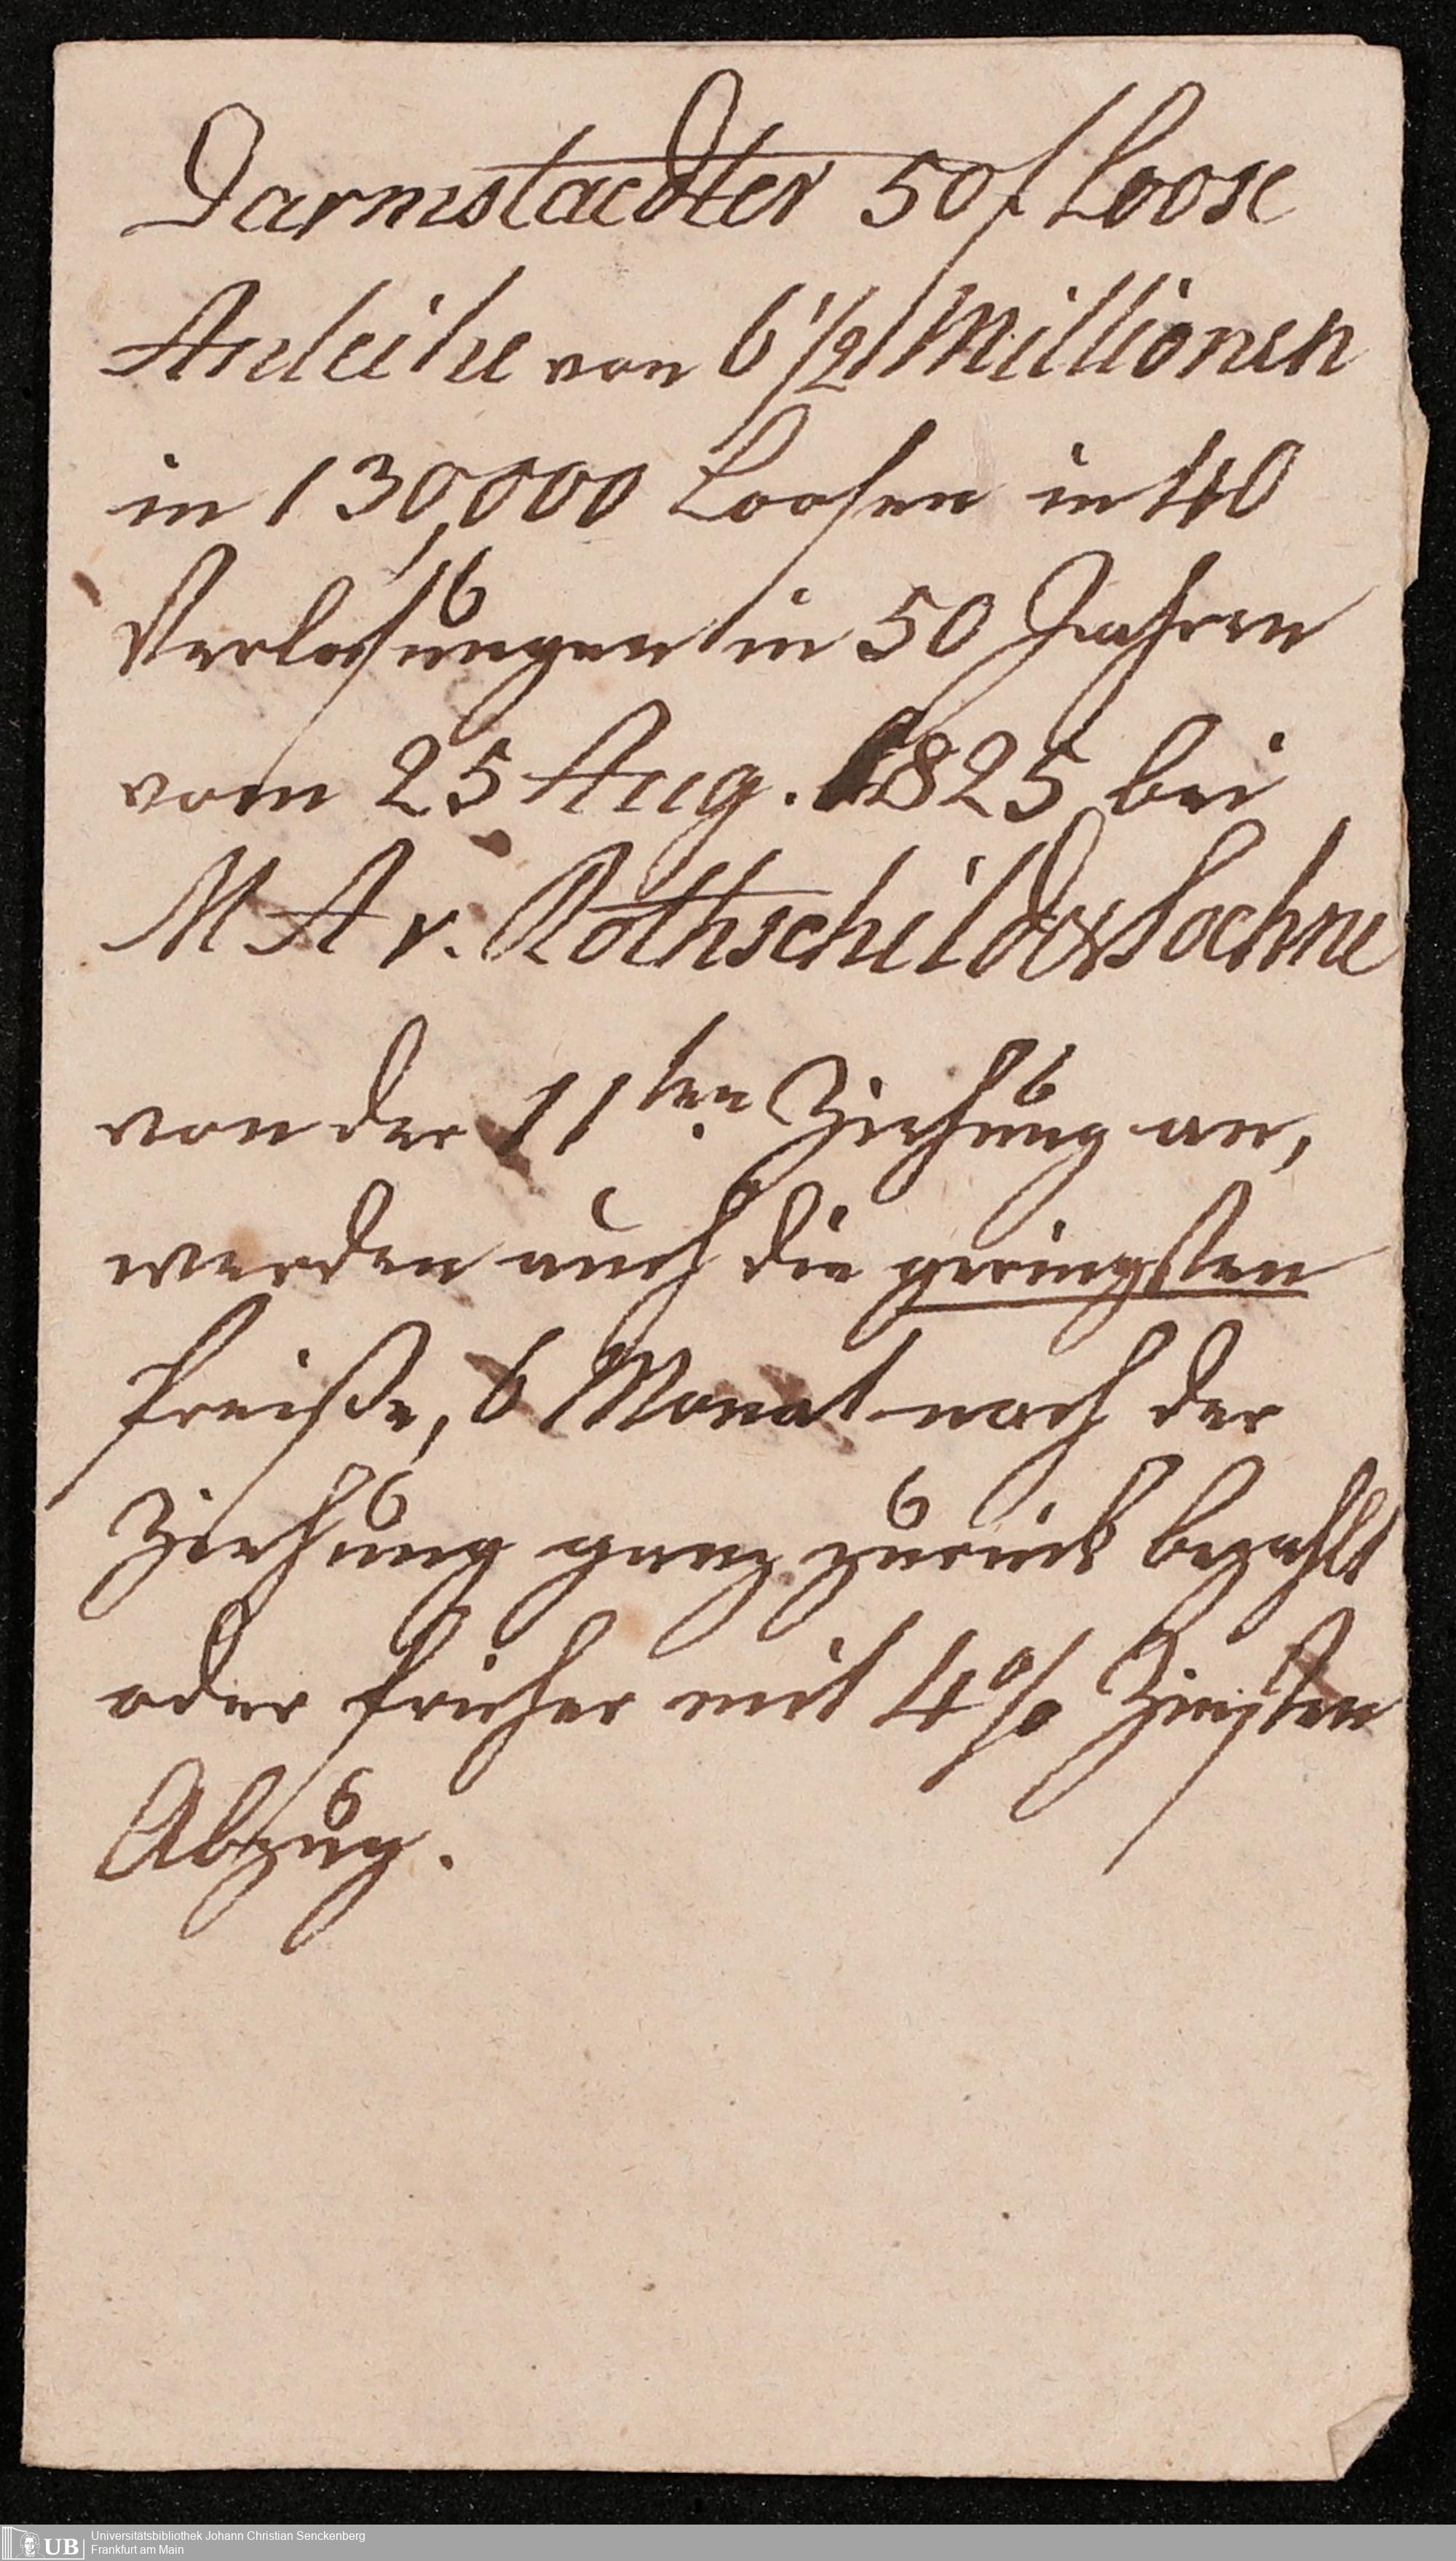 Darmstaedter 50 f Loose
Anleihe von 6 1/2 Millionen
in 130,000 Loosen in 40
Verlosungen in 50 Jahren
vom 25 Aug. 1825 bei
M A v. Rothschild & Soehne
von der 11ten Ziehung an,
werden auch die geringsten
Preiße, 6 Monat nach der
Ziehung ganz zurück bezahlt
oder früher mit 4% Zinsen
Abzug.
UB
Universitätsbibliothek Johann Christian Senckenberg
Frankfurt am Main